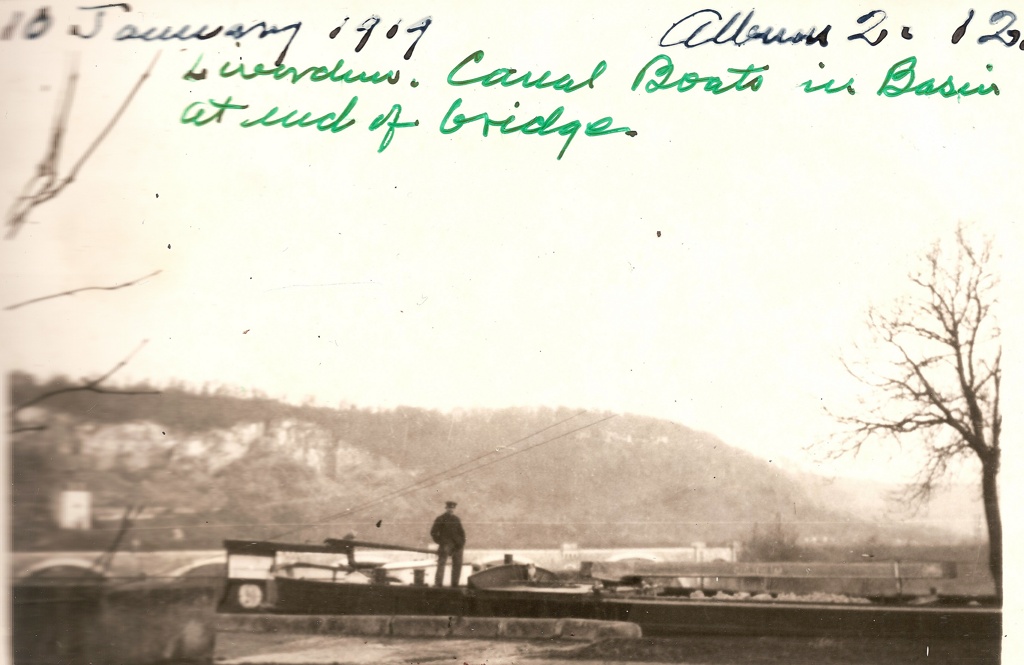 10 January 1919 Album 2. 12.
Liverdun. Canal Boats in Basin
at end of bridge.